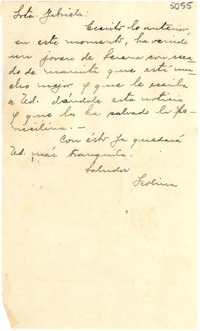 5055
Srta. Gabriela:
Escrito lo anterior,
en este momento, ha venido
un joven de Serena
do de mamita que está mu-
cho mejor y que le escriba
a Ud. dándole esta noticia
y que la ha salvado la Pe-
nicilina. —
Con ésto ya quedará
Ud. más tranquila.
Saludos
Isolina